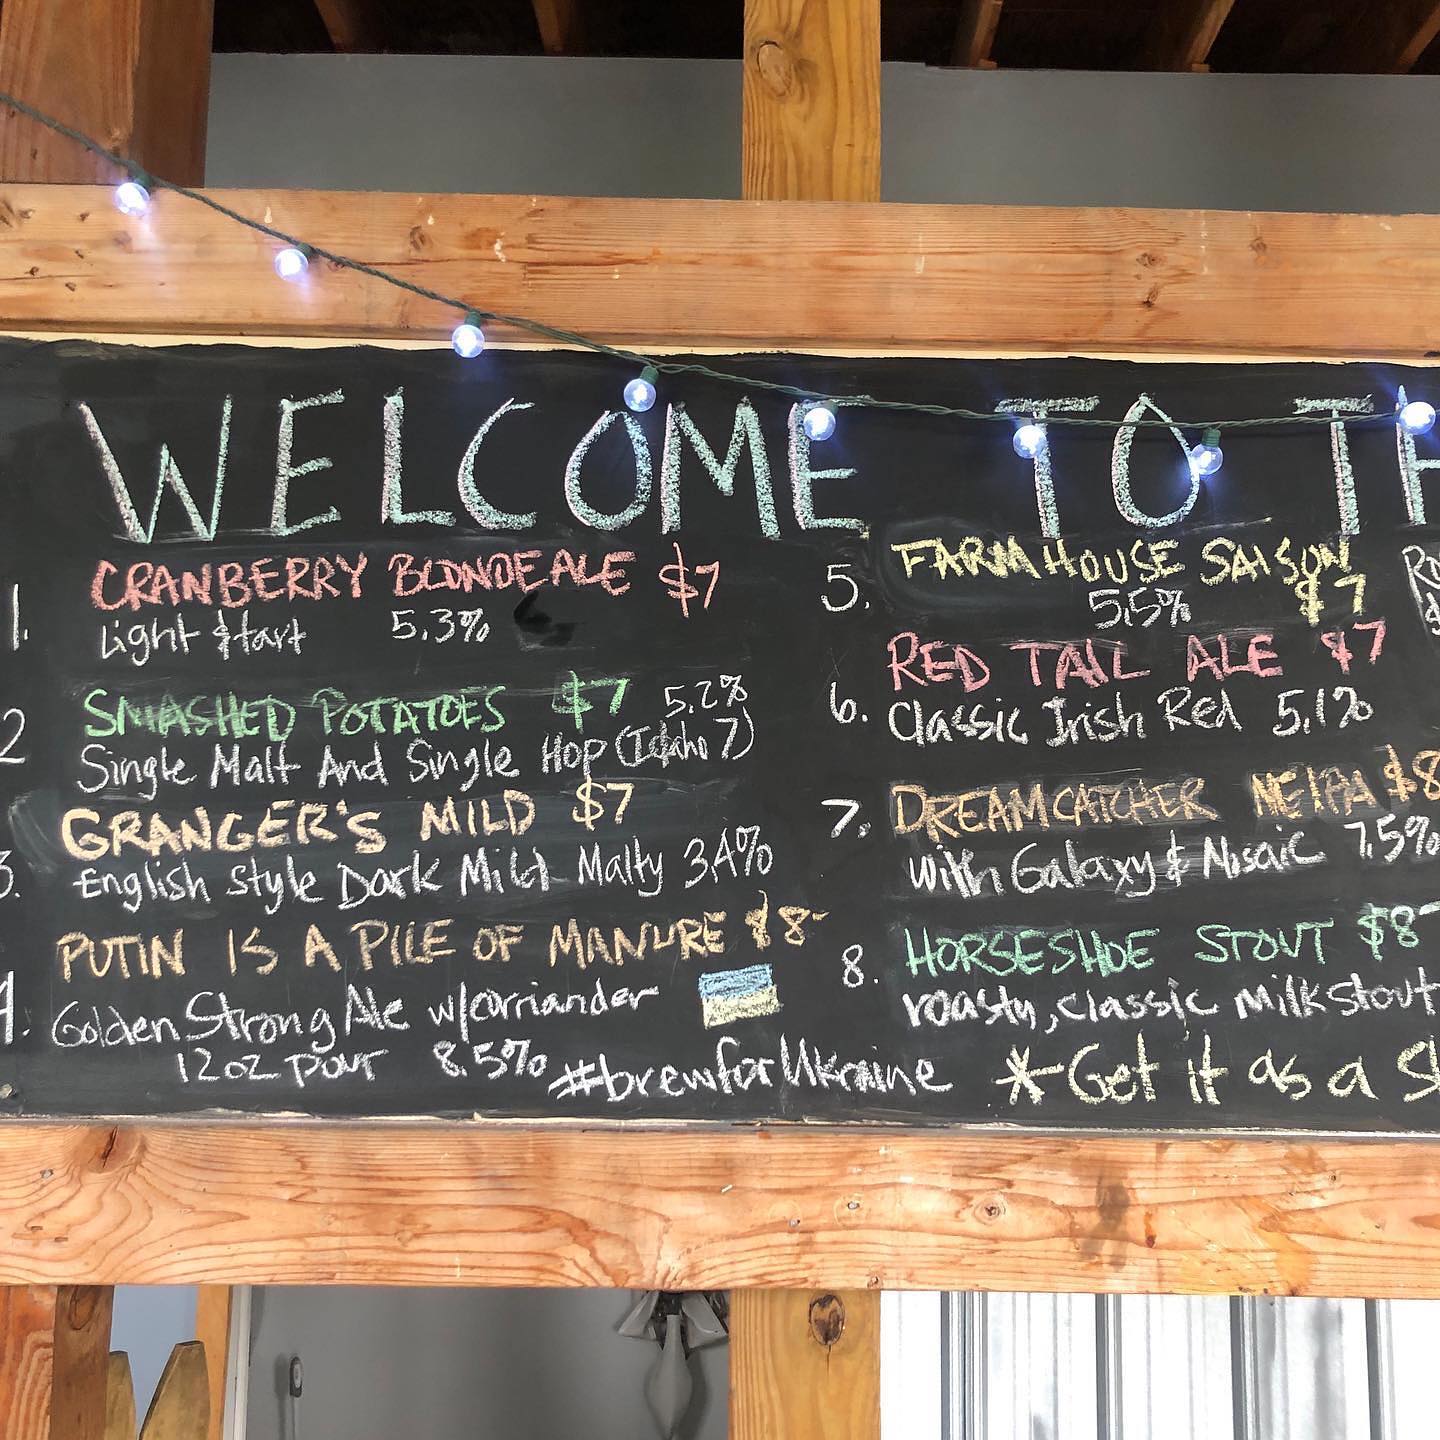 WELCOME TO TH
1. CRANBERRY BLONDE ALE $7
Light & tart 5.3%
2 SMASHED POTATOES $7 5.2%
Single Malt And Single Hop (Idaho 7)
3. GRANGER'S MILD $7
English Style Dark Mild Malty 3.4%
PUTIN IS A PILE OF MANURE $8-
4. Golden Strong Ale w/corriander
12oz POUR 8.5% #brewforUkraine
5. FARMHOUSE SAISON
5.5% $7
RED TAIL ALE $7
6. Classic Irish Red 5.1%
7. DREAMCATCHER NEIPA $8
with Galaxy & Mosaic 7.5%
8. HORSESHOE STOUT $8-
roasty, classic Milk Stout
*Get it as a